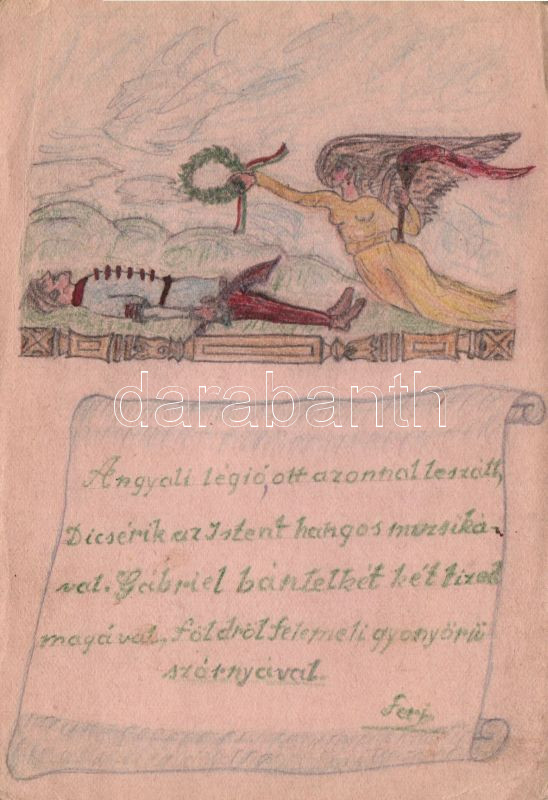 darabanth
Angyali légió, ott azonnal leszáll,
Dicsérik az Istent hangos muzsiká-
val. Gábriel bántelkét hét tized
magával, földről felemeli gyönyörű
szárnyával.
Feri